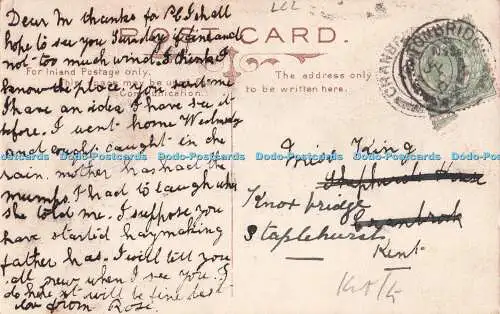 Dear M thanks for P.C I shall
hope to see you Sunday if fine and
not too much wind. I think I
know the place you sent me
I have an idea I have see it
before. I went home Wednesday
and caught in the
rain. mother has had the
mumps. I had to laugh when
she told me. I suppose you
have started haymaking
father has. I will tell you
all news when I see you. I
do hope it will be fine best
love from Rose.
POST CARD.
For Inland Postage only,
may be used
Communication.
The address only
to be written here.
TONBRIDGE
CRANBROOK
Miss King
Knoxbridge
Cranbrook
Staplehurst
Kent
Dodo-Postcards Dodo-Postcards Dodo-Postcards Dodo-Postcards Dodo-Postcards